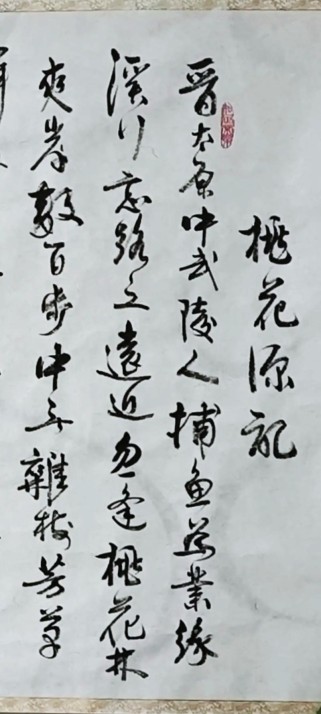 桃花源記
晉太原中武陵人捕魚為業緣
溪行忘路之遠近忽逢桃花林
夾岸數百步中無雜樹芳草